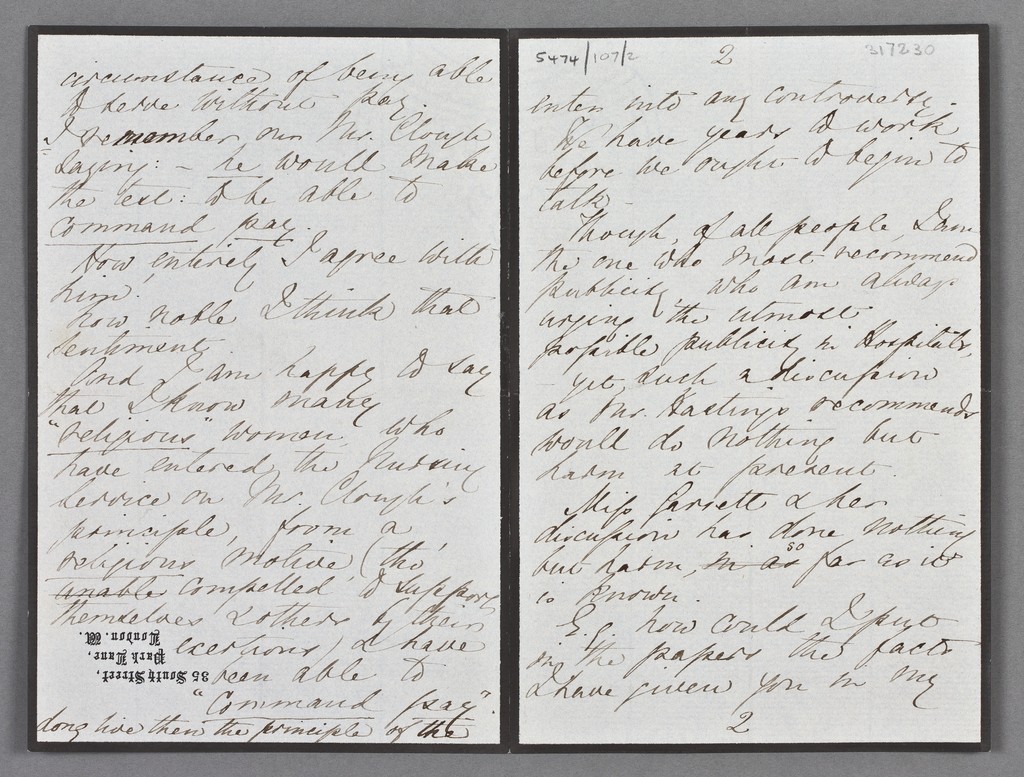 circumstance of being able
to serve without pay.
I remember our Mr. Clough
saying: - he would make
the test: to be able to
command pay.
How entirely I agree with
him.
how noble I think that
sentiment.
And I am happy to say
that I know many
"religious" women, who
have entered the Nursing
Service on Mr. Clough's
principle from a
religious motive, (tho'
unable compelled to support
themselves & others by their
exertions) & have
been able to
"Command pay".
long live then the principle of the
35 South Street,
Park Lane,
London. W.
5474/107/2
2
317230
enter into any controversy.
We have years to work
before we ought to begin to
talk -
Though, of all people, I am
the one who most recommend
publicity, who am always
urging the utmost
possible publicity in Hospitals,
- yet such a discussion
as Mr. Hastings recommends
would do nothing but
harm at present.
Miss Garrett & her
discussion has done nothing
but harm, in as so far as it
is known.
E.g. how could I put
in the papers the facts
I have given you in my
2